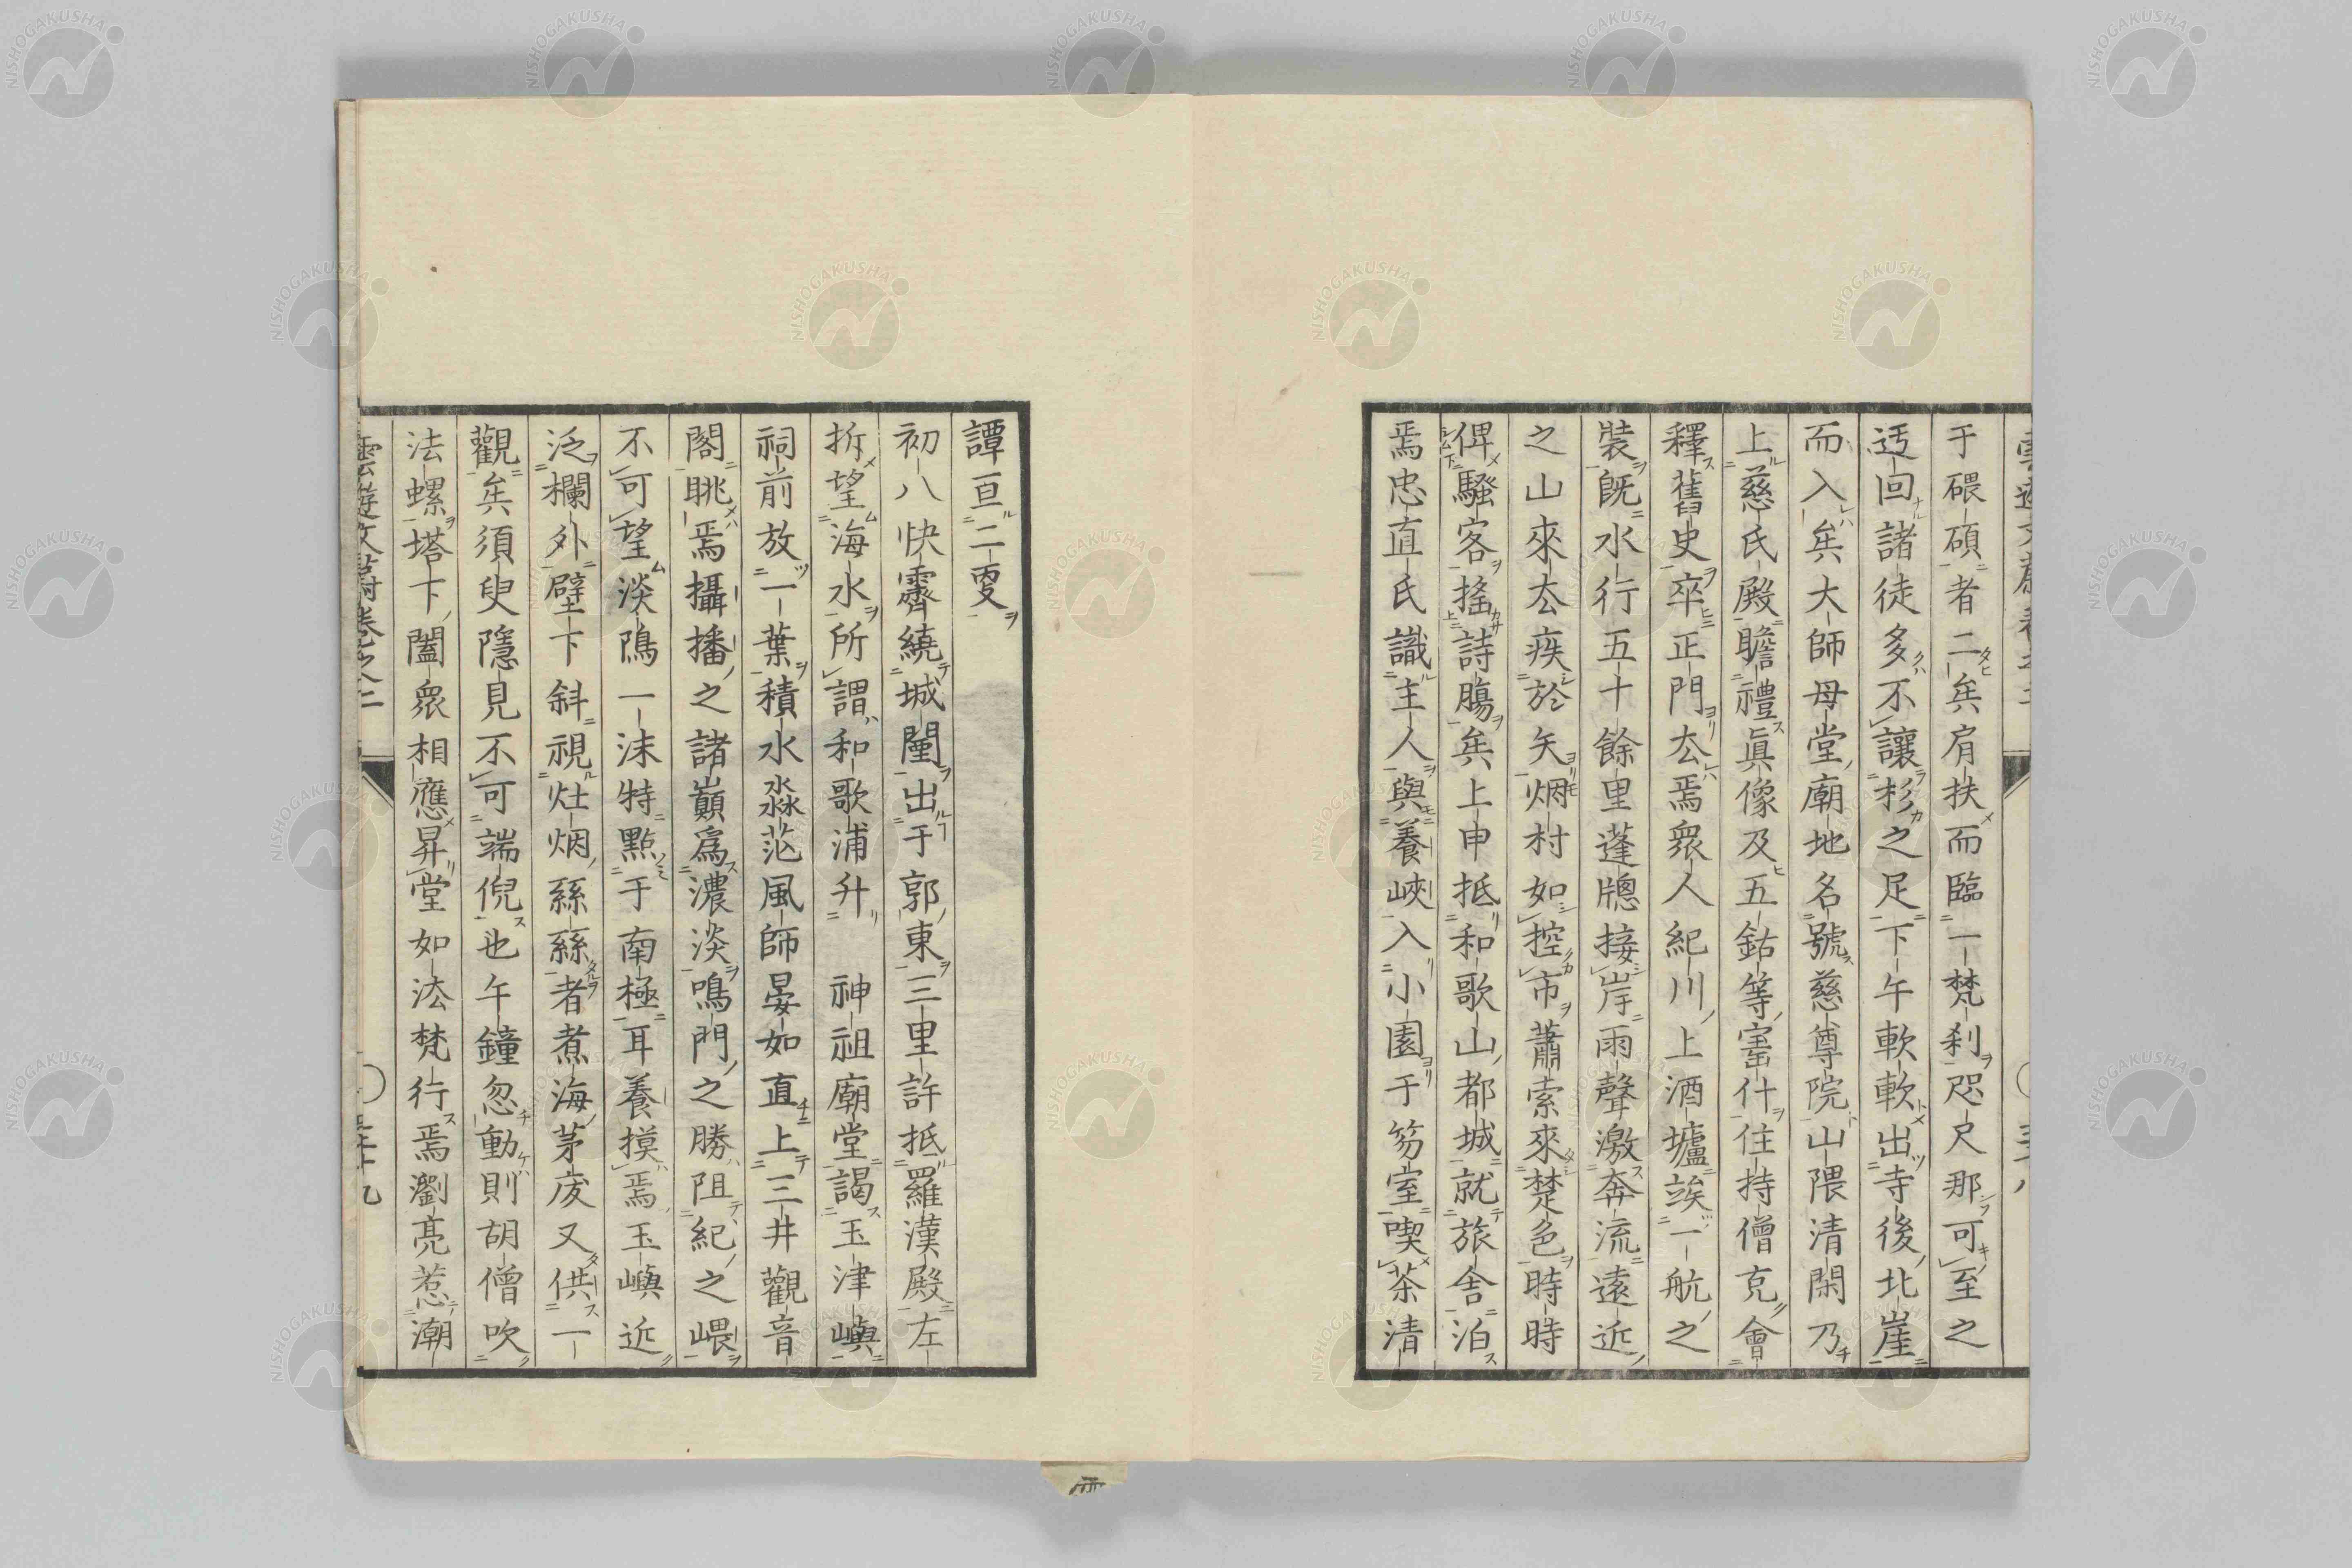 于碨碩者二矣肩扶而臨一梵刹咫尺那可至之
迃回諸徒多不讓杉之足下午軟軟出寺後北崖
而入矣大師母堂廟地名號慈尊院山隈清閑乃
上慈氏殿瞻禮眞像及五鈷等寚什住持僧克會
釋舊史卒正門厺焉眾人紀川上酒壚竢一航之
裝既水行五十餘里蓬牕接岸雨聲激奔流遠近
之山來厺疾於矢烟村如控市蕭索來楚色時時
俾騷客搖詩膓矣上申抵和歌山都城就旅舍泊
焉忠直氏識主人與養峽入小園于笏室喫茶清
譚亘二叓
初八快霽繞城闉出于郭東三里許抵羅漢殿左
拆望海水所謂和歌浦升 神祖廟堂謁玉津嶼
祠前放一葉積水淼茫風師晏如直上三井觀音
閣眺焉攝播之諸巓爲濃淡鳴門之勝阻紀之嵔
不可望淡隝一沫特點于南極耳養摸焉玉嶼近
泛欄外壁下斜視灶烟縣縣者煮海茅庋又供一
觀矣須臾隱見不可端倪也午鐘忽動則胡僧吹
法螺塔下闔眾相應昇堂如法梵行焉瀏亮惹潮
雲遊文蔚卷之二 五十九
NISHOGAKUSHA